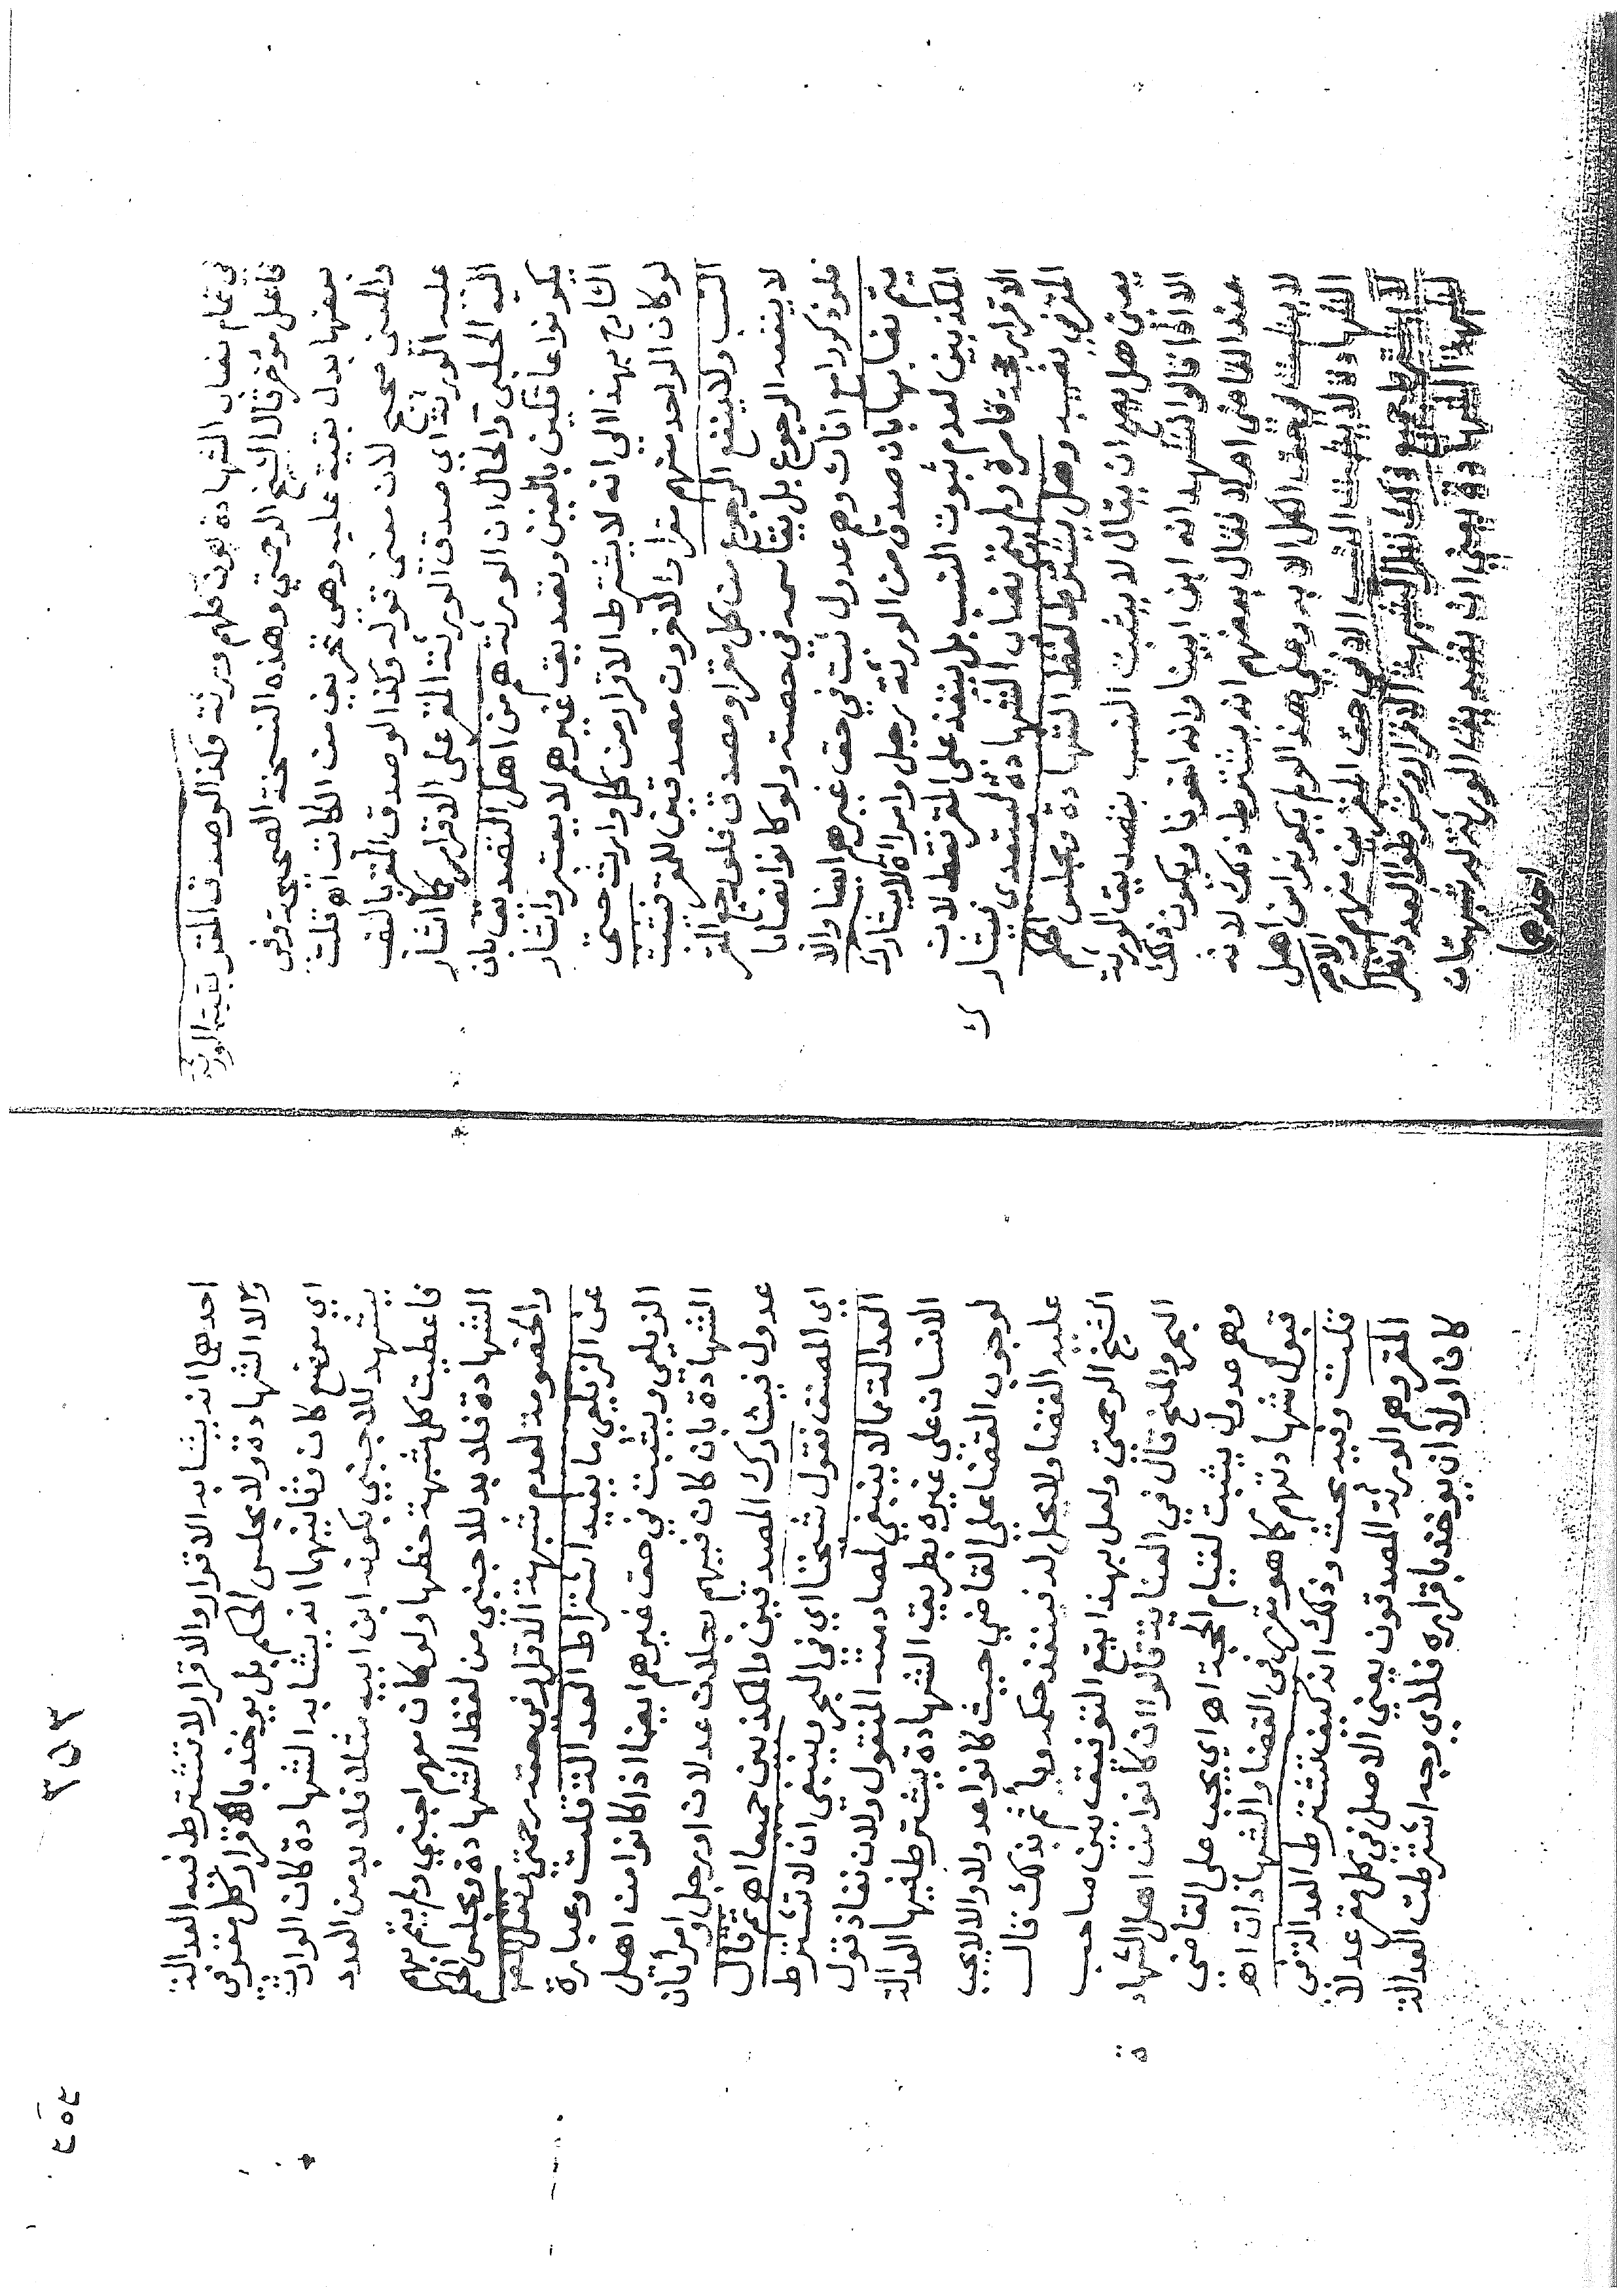 في تمام نصاب الشهادة بكون كلهم ورثة وكذا لو صدق المقر بقية الورثة
فاعل مؤخر قال الشيخ الرحمتي وهذه النسخة الصحيحة وفي
بعضها بدل بقية عليه وهي تحريف من الكاتب اه قلت
والمعنى صحيح لان معنى قوله وكذا لو صدق المقر بالفتح
عليه الورثة اي صدق الورثة المقر على الاقرار كما اشار
اليه الحلبى والحال ان الورثة هم من اهل التصديق بان
يكونوا عاقلين بالغين وتصديق غيرهم لا يعتبر واشار
الشارح بهذا الى انه لا يشترط الاقرار من كل وارث حتى
لو كان الواحد منهم مقرا والاخرون مصدقين للمقر فيثبت
النسب ولا ينفع الرجوع من كل مقر او مصدق فلو رجع المقر
لا ينفعه الرجوع بل يقاسمه في حصته ولو كانوا نصابا
فلو ذكورا مع اناث وهم عدول ثبت في حق غيرهم ايضا والا
يتم نصابها بان صدق من الورثة رجل وامراة لا يشارك
المكذبين لعدم ثبوت النسب بل ينفذ على المقر فقط لان
الاقرار حجة قاصرة ولم يتم نصاب الشهادة ليتعدى فيشارك
المقر في نصيبه وهل يشترط لفظ الشهادة ومجلس الحكم
يعني هل يصح ان يقال لا يثبت النسب بتصديق الورثة
الا اذا قالوا نشهد انه ابن ابينا وانه اخونا ويكون ذلك
عند القاضي ام لا فقال بعضهم انه يشترط ذلك لانه
لا يثبت في حق الكل الا به وعلى هذا لو لم يكونوا من اهل
الشهادة لا يثبت النسب الا في حق المقرين منهم والاصح
لا يشترط جميع ذلك نظرا لشبهة الاقرار وشرطوا العدد نظرا
لشبهة الشهادة يعني ان تصديق الورثة له شبهتان
احدهما
٣٥٣
احدهما انه يشابه الاقرار والاقرار لا تشترط فيه العدالة
ولا الشهادة ولا مجلس الحكم بل يوخذ باقرار كل مقر وفي
اي موضع كان وثانيهما انه يشابه الشهادة كان الوارث
يشهد للاجنبي بكونه ابن ابيه مثلا فلا بد من العدد
فاعطيت كل شبهة حظها ولو كان معهم اجنبي ولم يتم بهم
الشهادة فلا بد للاجنبي من لفظ الشهادة ومجلس الحكم
والخصومة لعدم شبهة الاقرار في حقه رحمتي نقل المصنف
عن الزيلعي ما يفيد اشتراط العدالة قلت وعبارة
الزيلعي ويثبت في حق غيرهم ايضا اذا كانوا من اهل
الشهادة بان كان فيهم رجلان عدلان او رجل وامرأتان
عدول فيشارك المصدقين والمكذبين جميعا اه ثم قال
اى المصنف فقول شيخنا اي في البحر ينبغى ان لا تشترط
العدالة مما لا ينبغي لمصادمته المنقول ولان نفاذ قول
الانسان على غيره بطريق الشهادة يشترط فيها العدالة
لوجوب القضا على القاضي حيث كانوا عدولا والا لا يجب
عليه القضا ولا يحل له فينفذ حكمه ويأثم بذلك قال
الشيخ الرحمتي ولعل بهذا يقع التوفيق بين صاحب
البحر والمنح قال في العناية قالوا ان كانوا من اهل الشهادة
وهم عدول يثبت لقيام الحجة اه اي يجب على القاضى
قبول شهادتهم كما هو مقرر في القضا والشهاذات اه
قلت وفيه بحث وذلك انه كيف تشترط العدالة في
المقر وهم الورثة المصدقون يعني الاصل في كل مقر عدلا
كان اولا ان يوخذ باقراره فلاي وجه اشترطت العدالة